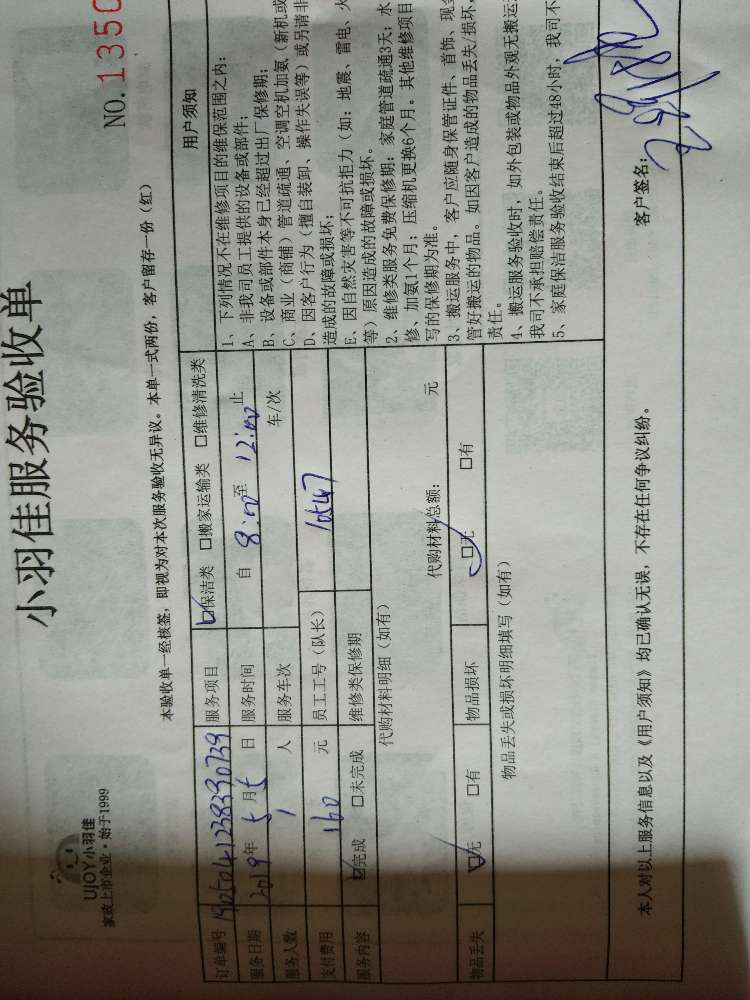 小羽佳服务验收单
NO.1350
UJOY小羽佳
家政上市企业·始于1999
本验收单一经核签，即视为对本次服务验收无异议。本单一式两份，客户留存一份（红）
订单编号 服务项目 保洁类 □搬家运输类 □维修清洗类
服务日期 2019年5月5日 服务时间 自 8:00 至 12:00 止
服务人数 1 人 服务车次 车/次
支付费用 160 元 员工工号（队长） 10547
服务内容 ☑完成 □未完成 维修类保修期
代购材料明细（如有）
代购材料总额： 元
物品丢失 ☑无 □有 物品损坏 ☑无 □有
物品丢失或损坏明细填写（如有）
用户须知
1、下列情况不在维修项目的维保范围之内：
A、非我司员工提供的设备或部件；
B、设备或部件本身已经超过出厂保修期；
C、商业（商铺）管道疏通、空调空机加氨（新机或
D、因客户行为（擅自装卸、操作失误等）或另请非
造成的故障或损坏；
E、因自然灾害等不可抗拒力（如：地震、雷电、火
等）原因造成的故障或损坏。
2、维修类服务免费保修期：家庭管道疏通3天；水
修、加氨1个月；压缩机更换6个月。其他维修项目
写的保修期为准。
3、搬运服务中，客户应随身保管证件、首饰、现金
管好搬运的物品。如因客户造成的物品丢失/损坏，
责任。
4、搬运服务验收时，如外包装或物品外观无搬运
我司不承担赔偿责任。
5、家庭保洁服务验收结束后超过48小时，我司不
本人对以上服务信息以及《用户须知》均已确认无误，不存在任何争议纠纷。
客户签名：